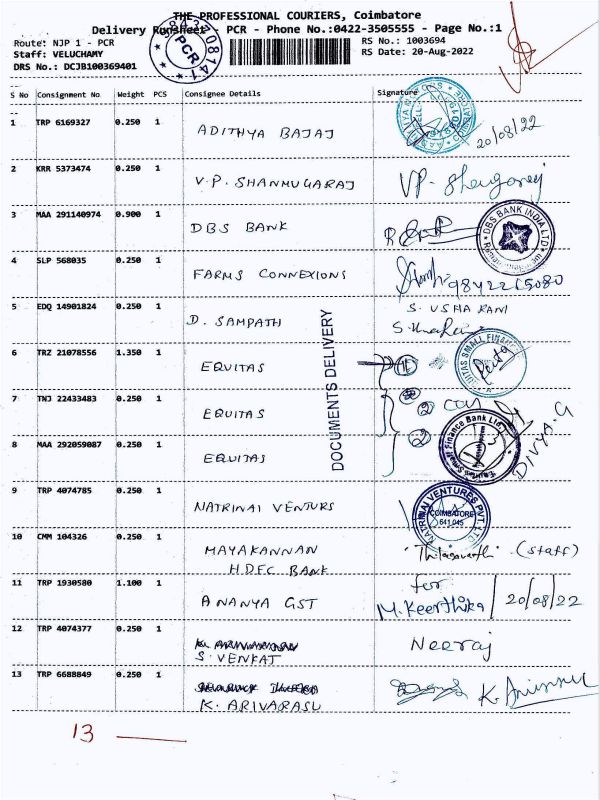 THE PROFESSIONAL COURIERS, Coimbatore
Delivery Runsheet - PCR - Phone No.:0422-3505555 - Page No.:1
Route: NJP 1 - PCR
RS No.: 1003694
Staff: VELUCHAMY
RS Date: 20-Aug-2022
DRS No.: DCJB100369401
PCR
S No Consignment No Weight PCS Consignee Details Signature
1 TRP 6169327 0.250 1 ADITHYA BAJAJ 20/08/22
2 KRR 5373474 0.250 1 V.P. SHANMUGARAJ
3 MAA 291140974 0.900 1 DBS BANK
DBS BANK INDIA LTD
4 SLP 568035 0.250 1 FARMS CONNEXIONS
5 EDQ 14901824 0.250 1 D. SAMPATH S. USHA RANI
DOCUMENTS DELIVERY
6 TRZ 21078556 1.350 1 EQUITAS
7 TNJ 22433483 0.250 1 EQUITAS 2
8 MAA 292059087 0.250 1 EQUITAS 2 DIVYA.G
9 TRP 4074785 0.250 1 NATRINAI VENTURS
NATRINAI VENTURES PVT. LTD
COIMBATORE
641 045
10 CMM 104326 0.250 1 MAYAKANNAN (staff)
HDFC BANK
11 TRP 1930580 1.100 1 ANANYA GST for
M.Keerthika 20/08/22
12 TRP 4074377 0.250 1 S. VENKAT Neeraj
13 TRP 6688849 0.250 1 K. ARIVARASU
13